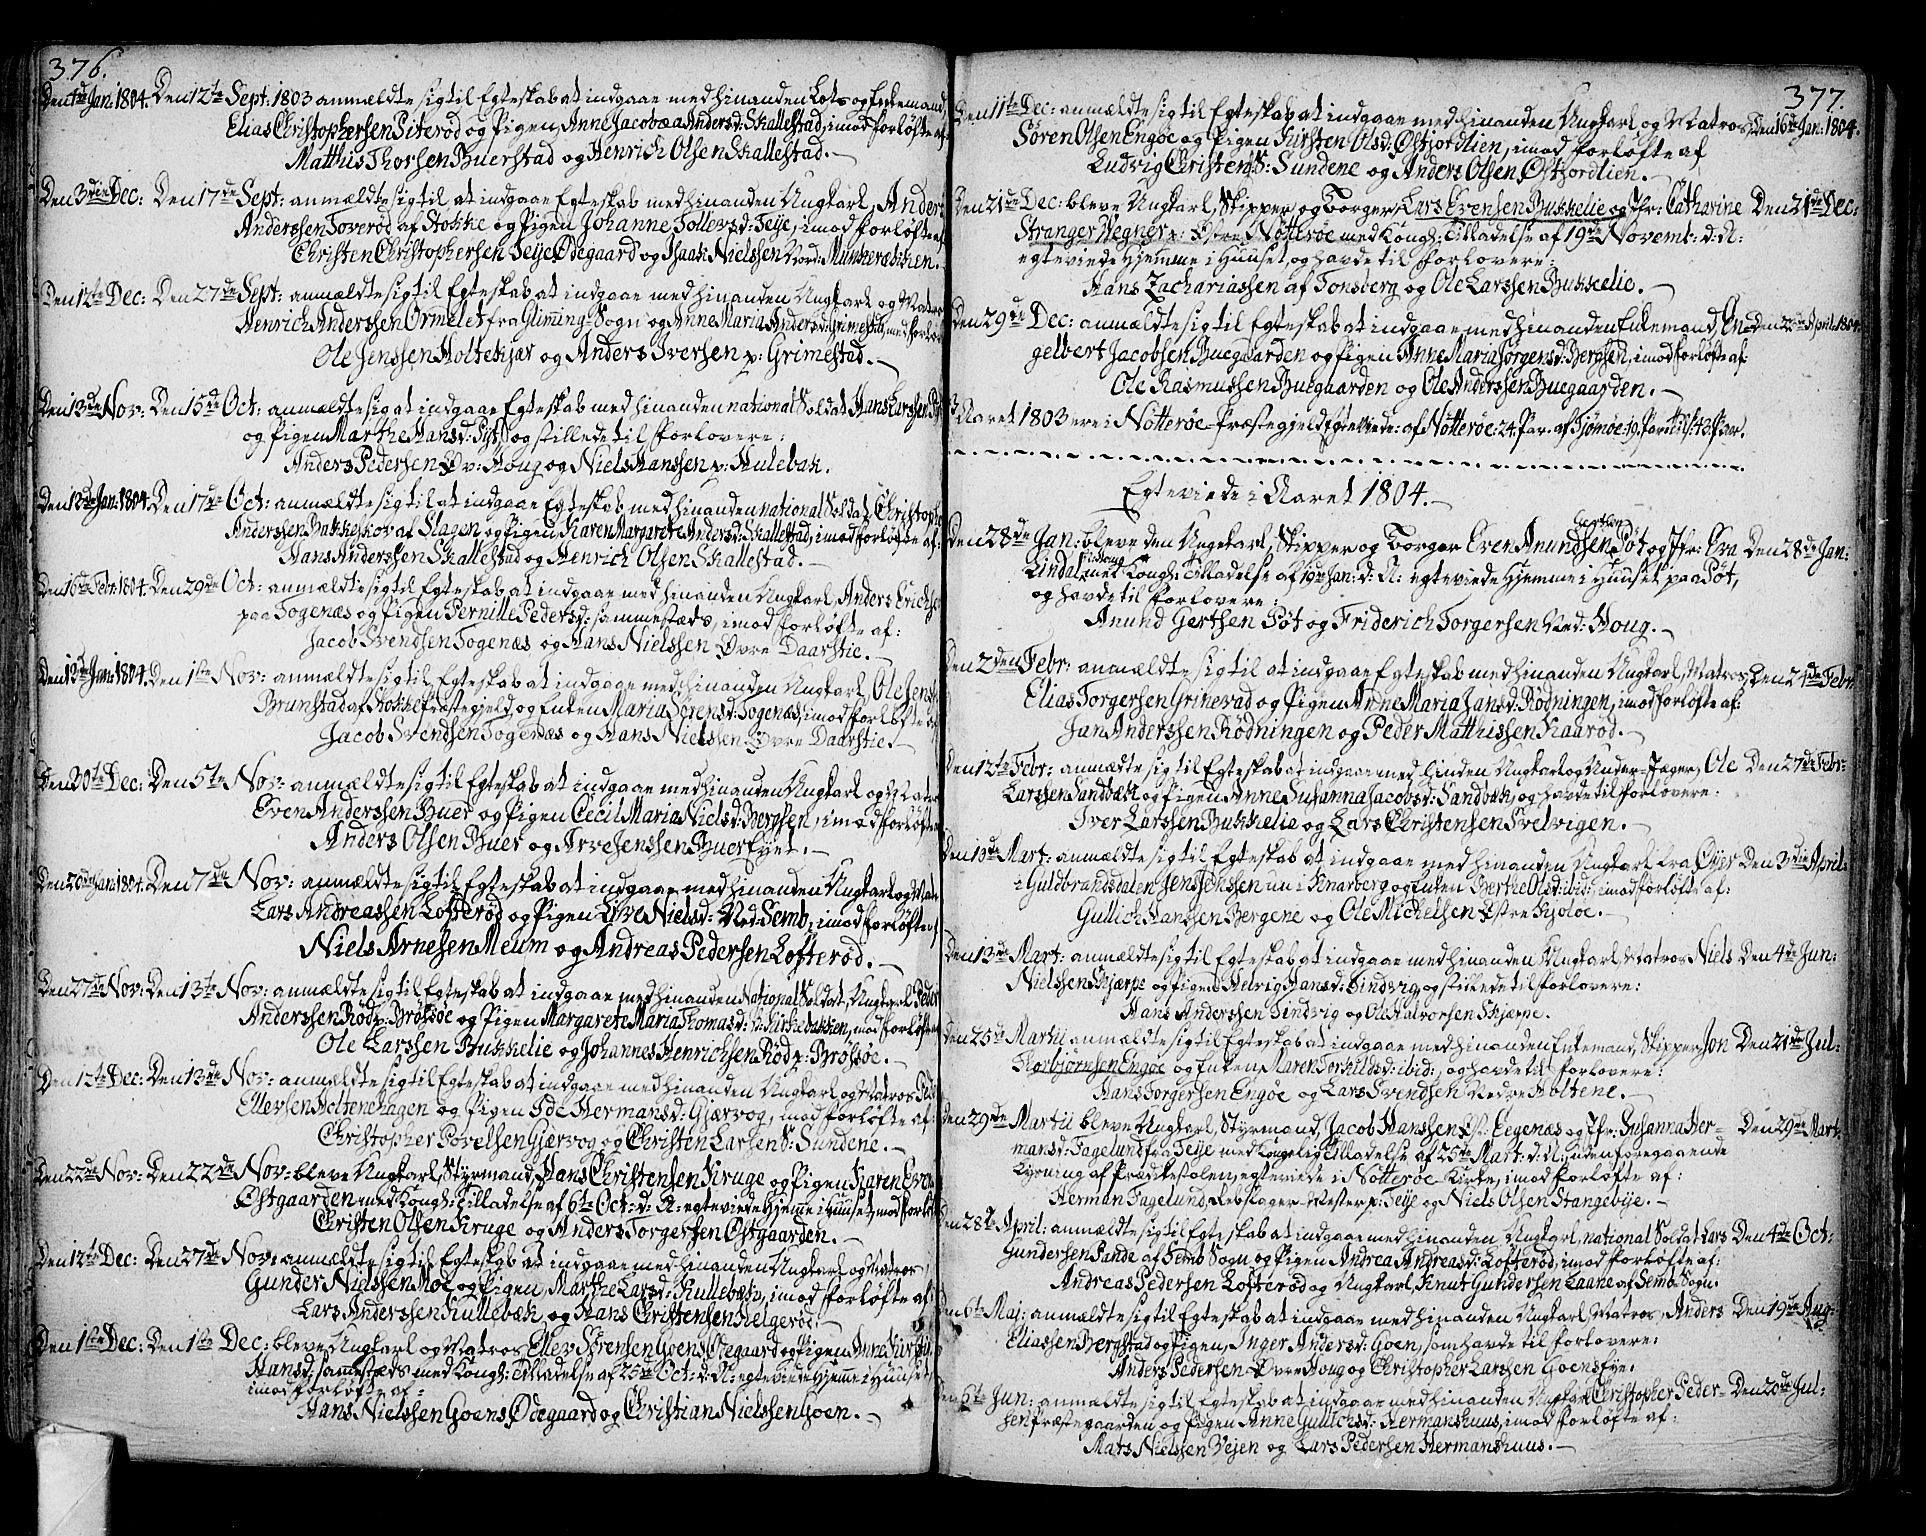 376.
Den 4de Jan: 1804. Den 12te Sept: 1803 anmældte sig til Egteskab at indgaae med hinanden Lots og Enkemand,
Elias Christophersen Piterød og Pigen Anne Jacobæa Andersd: Skallestad, imod Forløfte af
Matthis Thorsen Buerstad og Henrich Olsen Skallestad.
Den 3die Dec: Den 17de Sept: anmældte sig til at indgaae Egteskab med hinanden Ungkarl, Anders
Anderssen Toverød af Stokke og Pigen Johanne Tollevsd: Teije, imod Forløfte af
Christen Christophersen Teije Ødegaard og Isaak Nielssen Nord: Munkerækken.
Den 12te Dec: Den 27de Sept: anmældte sig til Egteskab at indgaae med hinanden Ungkarl og Matros
Henrich Anderssen Ormelet fra Gliming-Sogn og Anne Maria Andersd: Grimestad, imod Forløf
Ole Jenssen Holtekjær og Anders Iversen p: Grimestad.
Den 13de Nov. Den 15de Oct: anmældte sig at indgaae Egteskab med hinanden national Soldat Hans Larssen
og Pigen Marthe Hansd: og stillede til Forlovere:
Anders Pedersen Øv: Houg og Niels Hanssen p: Hulebak.
Den 13de Jan: 1804. Den 17de Oct: anmældte sig til at indgaae Egteskab med hinanden national Soldat Christoph
Anderssen Bakkeskov af Slagen og Pigen Karen Margarete Andersd: Skallestad, imod Forløfte af:
Hans Anderssen Skallestad og Henrich Olsen Skallestad.
Den 16de Febr: 1804. Den 29de Oct: anmældte sig til Egteskab at indgaae med hinanden Ungkarl Anders Erichs
paa Togenæs og Pigen Pernille Pedersd: sammestæds, imod Forløfte af:
Jacob Svendsen Togenæs og Hans Nielssen Øvre Daarstie.
Den 13de Jan: 1804. Den 1ste Nov: anmældte sig til Egteskab at indgaae med hinanden Ungkarl Ole Jens
Brunstad af Stokke Præstegjeld, og Enken Maria Sørensd: Togenæs, imod Forløfte af
Jacob Svendsen Togenæs og Hans Nielssen Øvre Daarstie.
Den 30te Dec: Den 5te Nov: anmældte sig til Egteskab at indgaae med hinanden Ungkarl og Matros
Even Anderssen Buer og Pigen Cecil Maria Nielsd: Bergsen, imod Forløfte
Anders Olsen Buer og Arve Jenssen Buer Eyet.
Den 20de Jan: 1804. Den 7de Nov: anmældte sig til Egteskab at indgaae med hinanden Ungkarl og Mat
Lars Andreassen Lofterød og Pigen Live Nielsd: Ned: Semb, imod Forløfte af
Niels Arnesen Meum og Andreas Pedersen Lofterød.
Den 27de Nov: Den 13te Nov: anmældte sig til Egteskab at indgaae med hinanden National Soldat, Ungkarl Peder
Anderssen Rød p: Brøtsøe og Pigen Margarete Maria Thomasd: Kirkebakken, imod Forløfte
Ole Larssen Bukkelie og Johannes Henrichsen Rød p: Brøtsøe.
Den 12te Dec: Den 13de Nov: anmældte sig til Egteskab at indgaae med hinanden Ungkarl og Matros Ped
Ellevsen Holtenehagen og Pigen Ide Hermansd: Gjærvog, imod Forløfte af:
Christopher Povelsen Gjærvog og Christen Larsen S: Sundene.
Den 22de Nov: Den 22de Nov: bleve Ungkarl, Styrmand, Hans Christensen Kruge og Pigen Karen Even
Østgaarden med Kongl: Tilladelse af 6te Oct: d: A: egteviede Hjemme i Huuset, imod Forløf
Christen Olsen Kruge og Anders Torgersen Østgaarden.
Den 12te Dec: Den 27de Nov: anmældte sig til Egteskab at indgaae med hinanden Ungkarl og Matros
Gunder Nielssen Moe og Pigen, Marthe Larsd: Kullebæk, imod Forløfte af:
Lars Anderssen Kullebæk og Hans Christensen Helgerød.
Den 1ste Dec: Den 1ste Dec: bleve Ungkarl og Matros Ellev Sørensen Goens Ødegaard og Pigen Anne Kirsti
Hansd: sammestæds med Kongl: Tilladelse af 25de Oct: d: A: egteviede Hjemme i Huuset,
imod Forløfte af:
Hans Nielssen Goens Ødegaard og Christian Nielssen Goen.
377.
Den 11te Dec: anmældte sig til Egteskab at indgaae med hinanden Ungkarl og Matros Den 16de Jan: 1804.
Søren Olsen Engøe og Pigen Kirsten Olsd: Østjordlien, imod Forløfte af
Ludvig Christens: Sundene og Anders Olsen Østjordlien.
Den 21de Dec: bleve Ungkarl, Skipper og Borger Lars Evensen Bukkelie og Jfr: Catharine Den 21de Dec:
Stranger Wegner p: Østre Nøtterøe med Kongl: Tilladelse af 19de Novemt: d: A:
egteviede Hjemme i Huuset, og havde til Forlovere:
Hans Zachariassen af Tonsberg og Ole Larssen Bukkelie.
Den 29de Dec: anmældte sig til Egteskab at indgaae med hinanden Enkemand, En- Den April 1804
gelbert Jacobsen Buegaarden og Pigen Anne Maria Jørgensd: Bergsen, imod Forløfte af:
Ole Rasmussen Buegaarden og Ole Anderssen Buegaarden.
I Aaret 1803 ere i Nøtterøe-Præstegjeld Egteviede: af Nøtterøe: 24. Par. af Tjømøe 19. Par. tils: 43. Par.
Egteviede i Aaret 1804.
Den 28de Jan: bleve den Ungkarl, Skipper og Borger Even Anundsen Gerthsen Pøt og Jfr: Eva Den 28de Jan:
Lindal med Kongl: Tilladelse af 19de Jan: d: A: egteviede Hjemme i Huuset paa Pøt,
og havde til Forlovere:
Anund Gerthsen Pøt og Friderich Torgersen Ned: Houg.
Den 2den Febr: anmældte sig til at indgaae Egteskab med hinanden Ungkarl, Matros, Den 24de Febr
Elias Torgersen Grinevad og Pigen Anne Maria Jansd: Rødningen, imod Forløfte af:
Jan Anderssen Rødningen og Peder Matthissen Kaarød.
Den 12te Febr: anmældte sig til Egteskab at indgaae med hinden Ungkarl og Under-Jæger, Ole Den 27de Febr-
Larssen Sandbæk og Pigen Anne Susanna Jacobsd: Sandbæk, og havde til Forlovere:
Iver Larssen Bukkelie og Lars Christensen Svelvigen.
Den 10de Mart: anmældte sig til Egteskab at indgaae med hinanden Ungkarl fra Øyer Den 3die April:
i Guldbrandsdalen Jens Jenssen nu i Knarberg og Enken Berthe Olsd: ibid:, imod Forløfte af:
Gullich Hanssen Bergene og Ole Michelsen Østre Kjøløe.
Den 13de Mart: anmældte sig til Egteskab at indgaae med hinanden Ungkarl, Matros Niels Den 4de Jun:
Nielssen Skjærpe og Pigen Helvig Hansd: Tindvig, og stillede til Forlovere:
Hans Anderssen Tindvig og Ole Halvorsen Skjærpe.
Den 25de Martii anmældte sig til Egteskab at indgaae med hinanden Enkemand, Skipper Jon Den 21de Jul:
Thorbjørnsen Engøe og Enken, Maren Torkildsd: ibid:, og havde til Forlovere:
Hans Torgersen Engøe og Lars Svendsen Nedre Holtene.
Den 29de Martii bleve Ungkarl, Styrmand, Jacob Hanssen Øst: Eegenæs og Jfr: Susanna Her- Den 29de Mart:
mansd: Fagelund fra Teije med Kongelig Tilladelse af 25de Mart: d: A: uden foregaaende
Lysning af Prædikestolen, egteviede i Nøtterøe Kirke, imod Forløfte af:
Herman Fagelund, Rebslager Vester p: Teije og Niels Olsen Stangebye.
Den 28de April: anmældte sig til Egteskab at indgaae med hinanden Ungkarl, national Soldat Lars Den 4de Oct:
Gundersen Sande af Semb Sogn og Pigen Andrea Andreasd: Lofterød, imod Forløfte af:
Andreas Pedersen Lofterød og Ungkarl Knut Gundersen Laane af Semb-Sogn.
Den 6te Maj: anmældte sig til Egteskab at indgaae med hinanden Ungkarl, Matros, Anders Den 19de Aug:
Eliassen Bergstad og Pigen, Inger Andersd: Goen, som havde til Forlovere:
Anders Pedersen Øvre Houg og Christopher Larssen Goens Eye.
Den 6te Jun: anmældte sig til Egteskab at indgaae med hinanden Ungkarl Christopher Peder- Den 20de Jul:
sen Præstegaarden og Pigen Anne Gullichsd: Hermanshuus, imod Forløfte af:
Mats Nielssen Vejen og Lars Pedersen Hermanshuus.